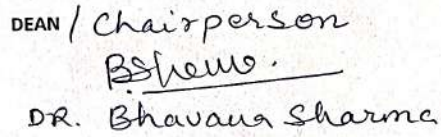 DEAN / Chairperson
BSharma.
DR. Bhavana Sharma